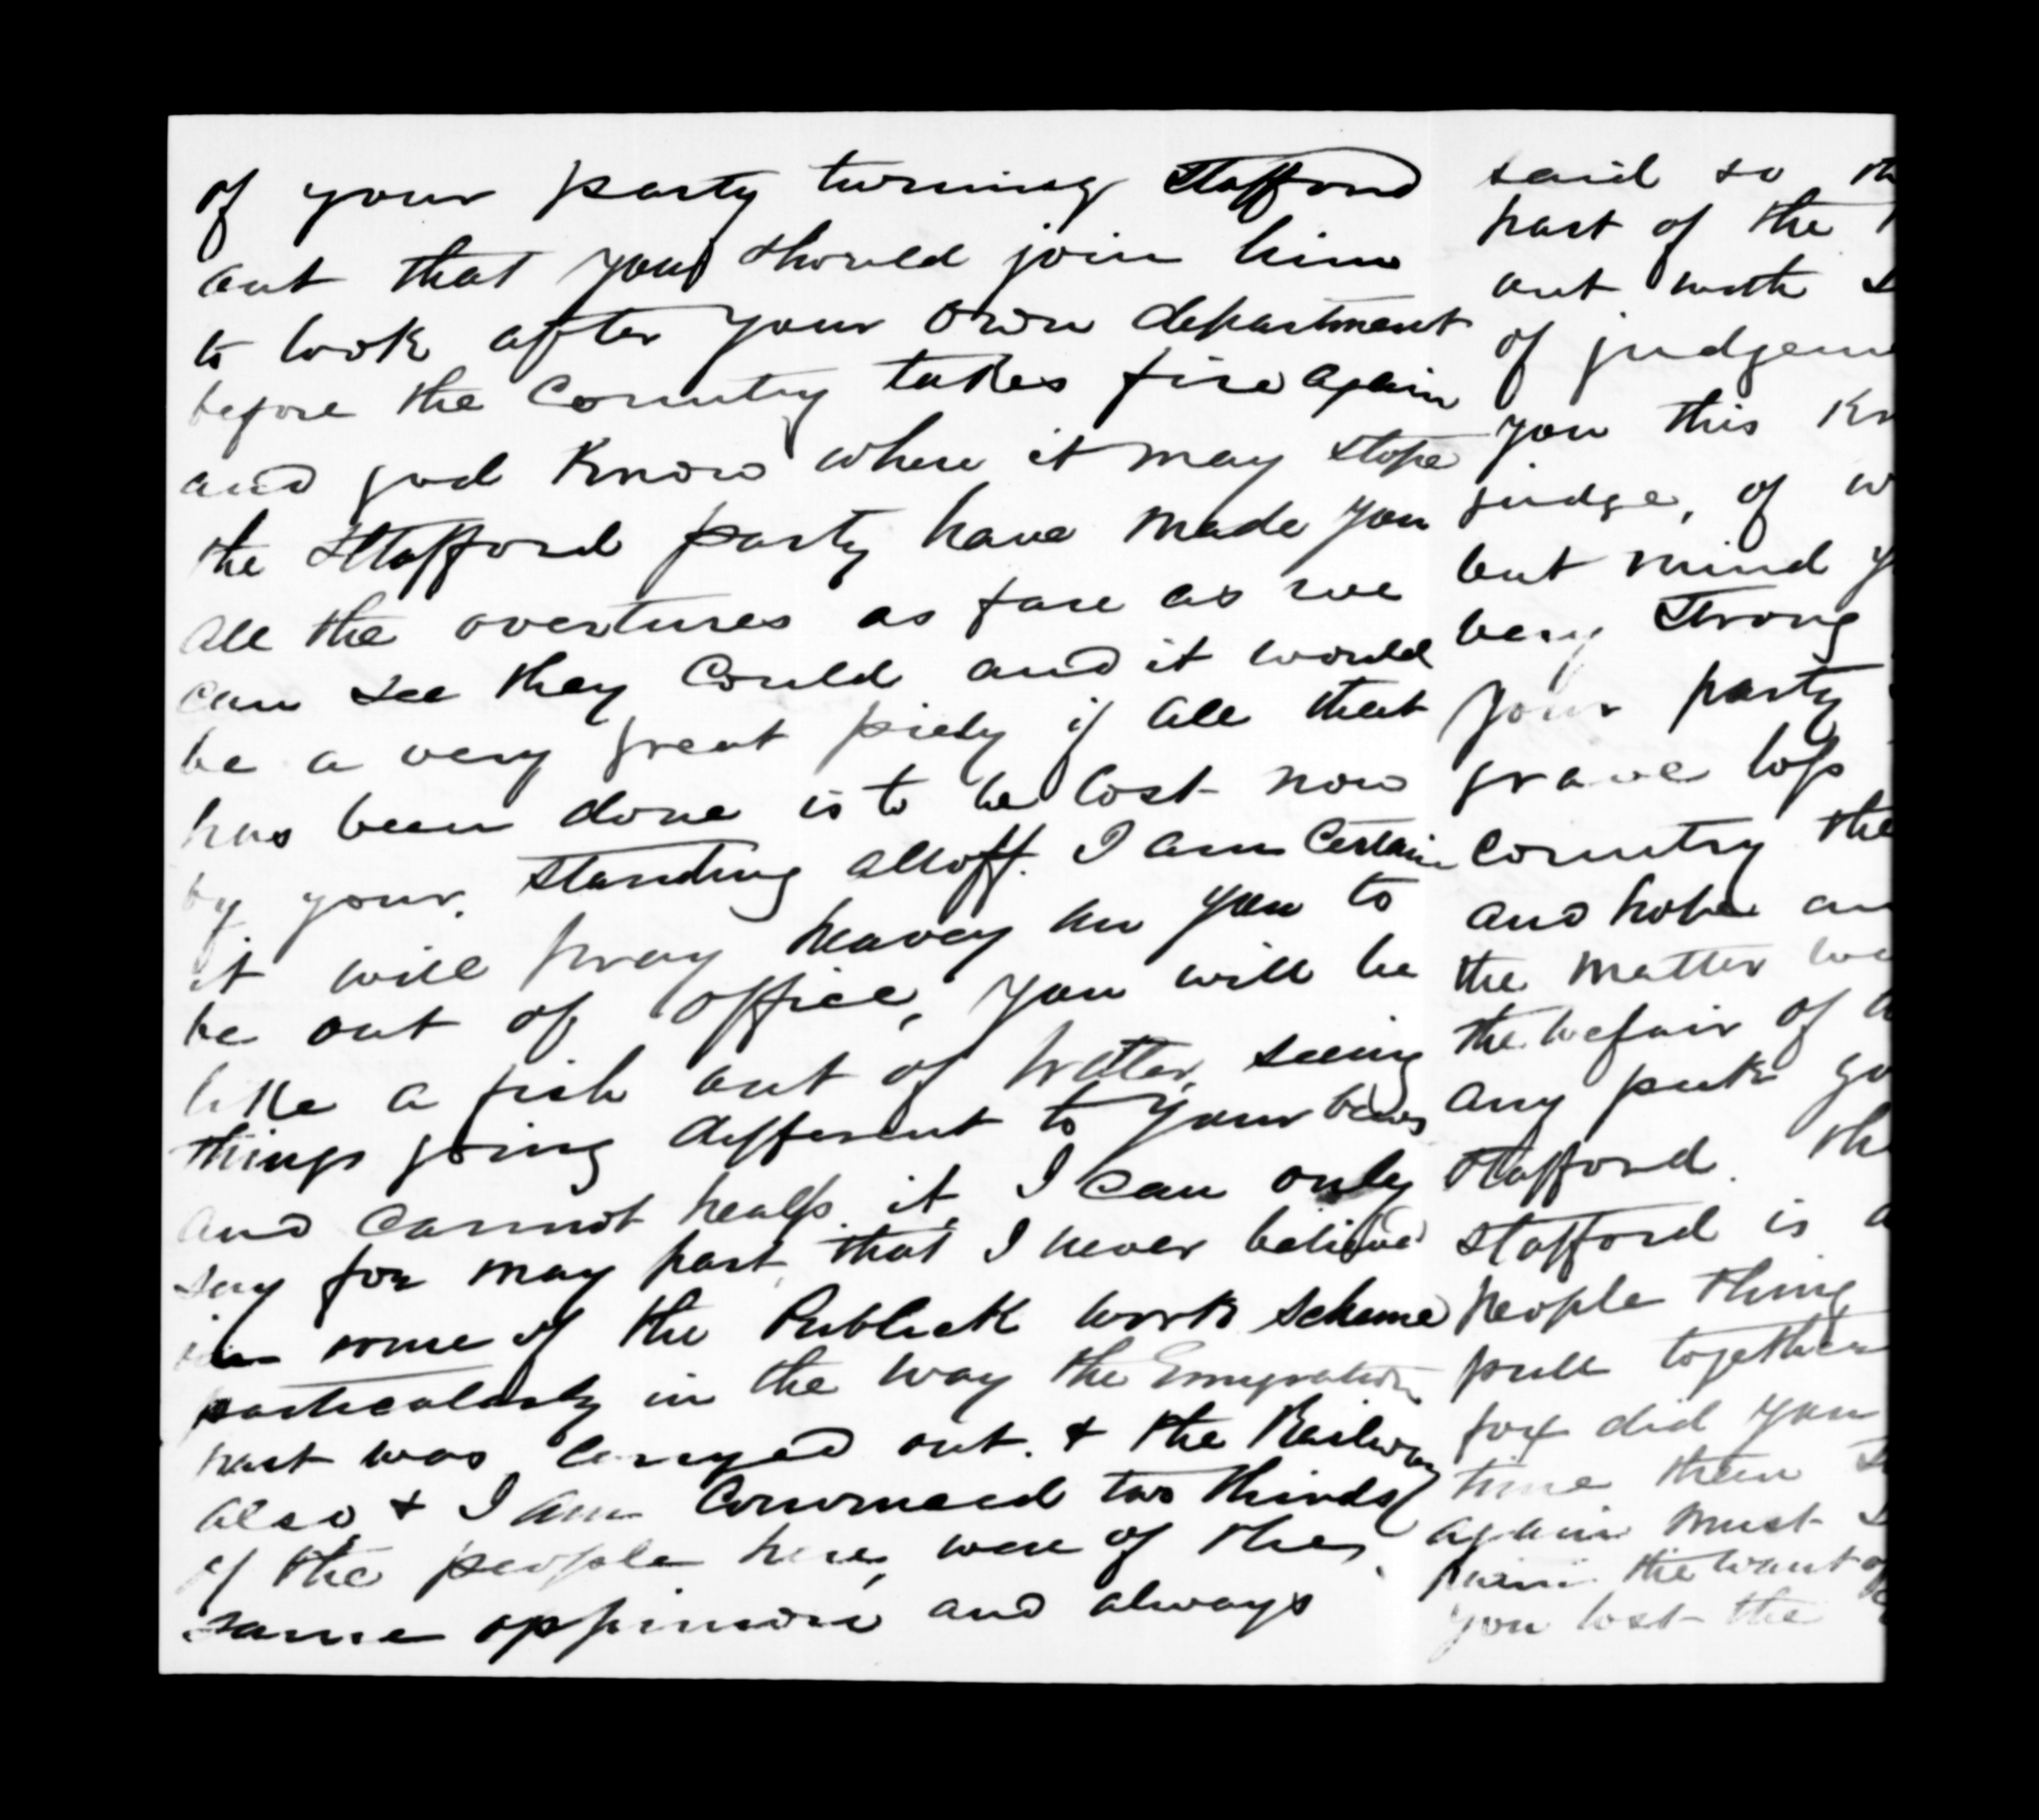 of your party turning Stafford
out that you should join him
to look after your own department
before the Country takes fire again
and god Know where it may stope
the Stafford party have made you
all the overtures as fare as we
can see they could and it would
be a very great piedy if all that
has been done is to be lost now
by your standing alloff. I am Certain
it will pray heavey an you to
be out of office, you will be
like a fish out of watter, seeing
things going different to your views
and cannot healp it, I can only
say for may part, that I never believd
in some of the Publick works scheme
particularly in the way the Emegration
part was carryed out. & the Railway
also, & I am Convinced two thirds
of the people here, were of the
same oppinion and always
said so
part of the
out with
of judgem
you this Kn
judge, of w
but mind y
very strong
your party
grave loss
Country the
and hope
the matter
the welfair of
any peek
Stafford. the
Stafford is a
people thing
pull together
fox did you
time then
again must
the want of
you lost the